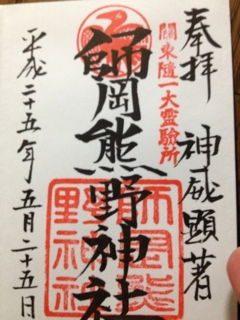 奉拝 神威顕著
関東随一大霊驗所
師岡熊野神社
師岡熊野神社
平成二十五年五月二十五日